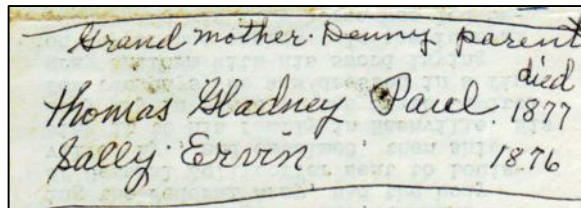 Grand mother Denny parent
died
Thomas Gladney Paul. 1877
Sally Ervin 1876